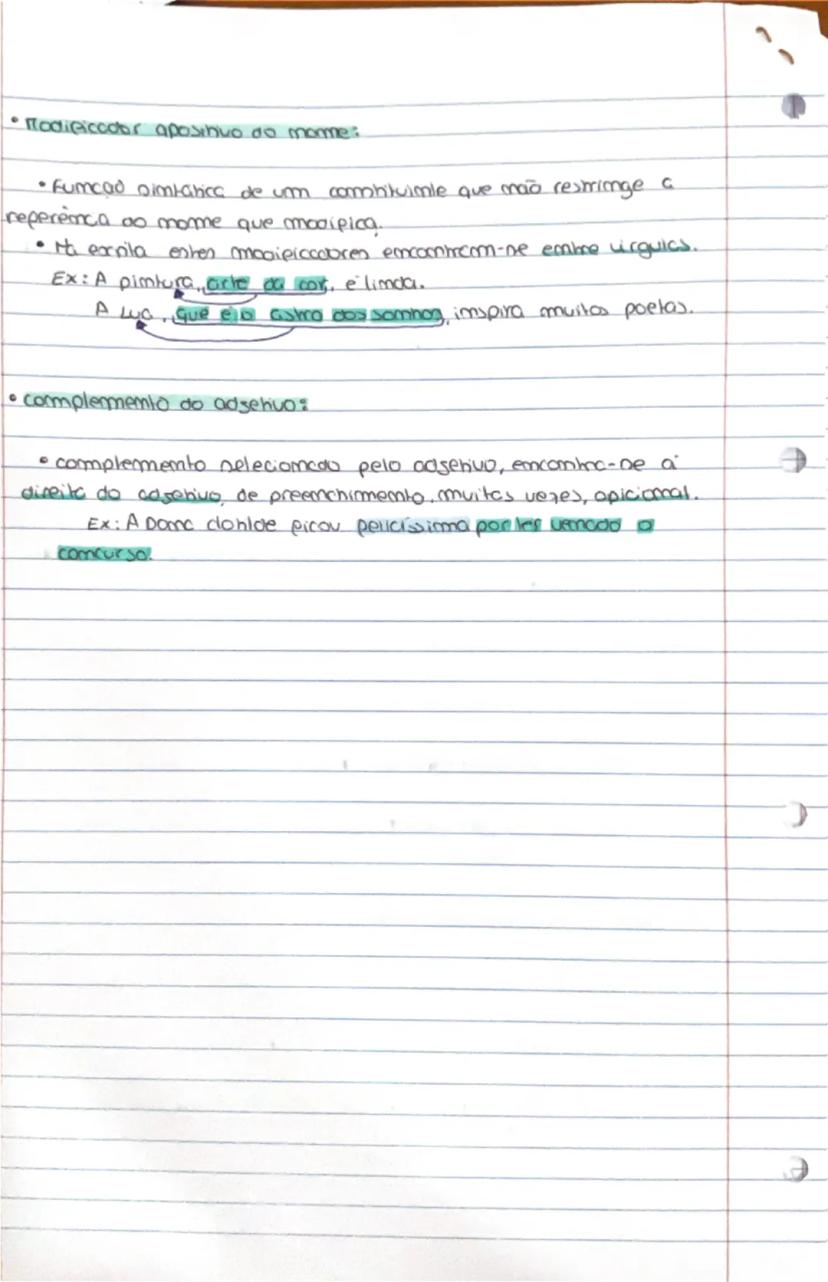 • Modificador apositivo do nome:
• Função sintática de um constituinte que não restringe a
referência do nome que modifica.
• Na escrita estes modificadores encontram-se entre vírgulas.
Ex: A pintura, arte da cor, é linda.
A Lua, que é o astro dos sonhos, inspira muitos poetas.
• complemento do adjetivo:
• complemento selecionado pelo adjetivo, encontra-se à
direita do adjetivo, de preenchimento, muitas vezes, opicional.
Ex: A Dona clotilde ficou felicíssima por ter vencido o
concurso.